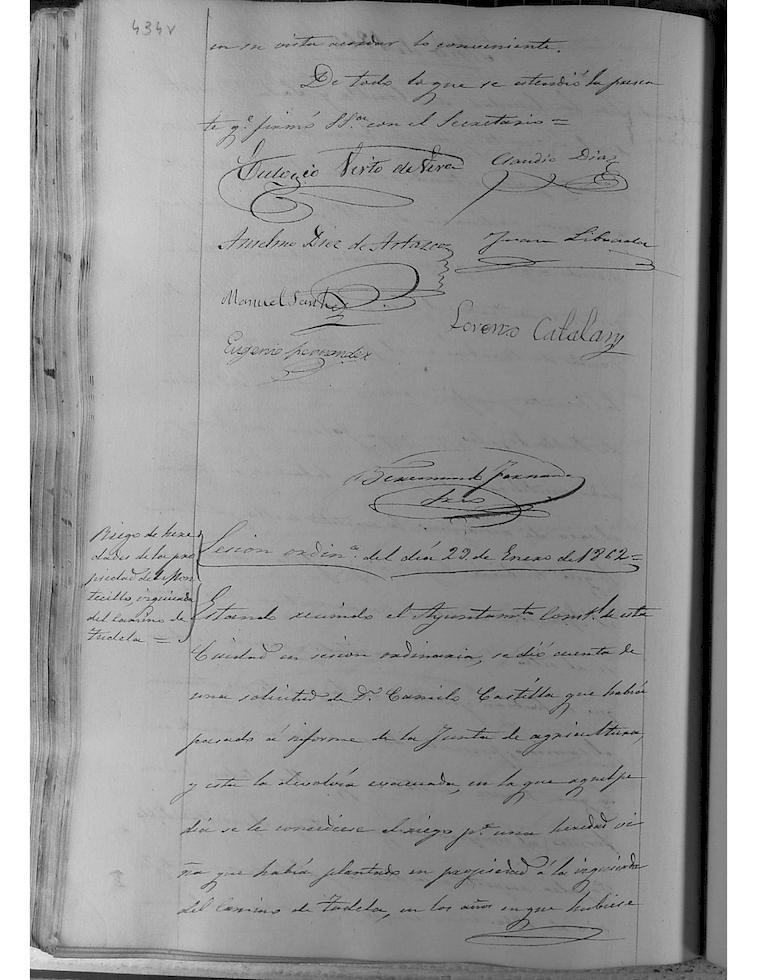 434v
en su vista acordar lo conveniente.
De todo lo que se estendió la presen
te q.e firmó SS.as con el Secretario =
Eulogio Virto de Vera Claudio Diaz
Anselmo Diez de Artazcoz Juan Liborada
Manuel Sanchez
Lorenzo Catalan
Eugenio Fernandez
Beremund Fernan
dez
Riego de here
dades de la pro
piedad del Mon
tecillo, izquierda
del Camino de
Tudela =
Sesion ordin.a del día 23 de Enero de 1862 =
Estando reunido el Ayuntam.to Const.l de esta
Ciudad en sesion ordinaria, se dió cuenta de
una solicitud de D.n Camilo Castilla que había
pasado á informe de la Junta de agricultura,
y esta la devolvía evacuada, en la que aquel pe
día se le concediese el riego p.a una heredad vi
ña que había plantado en propiedad á la izquierda
del Camino de Tudela, en los años en que hubiese